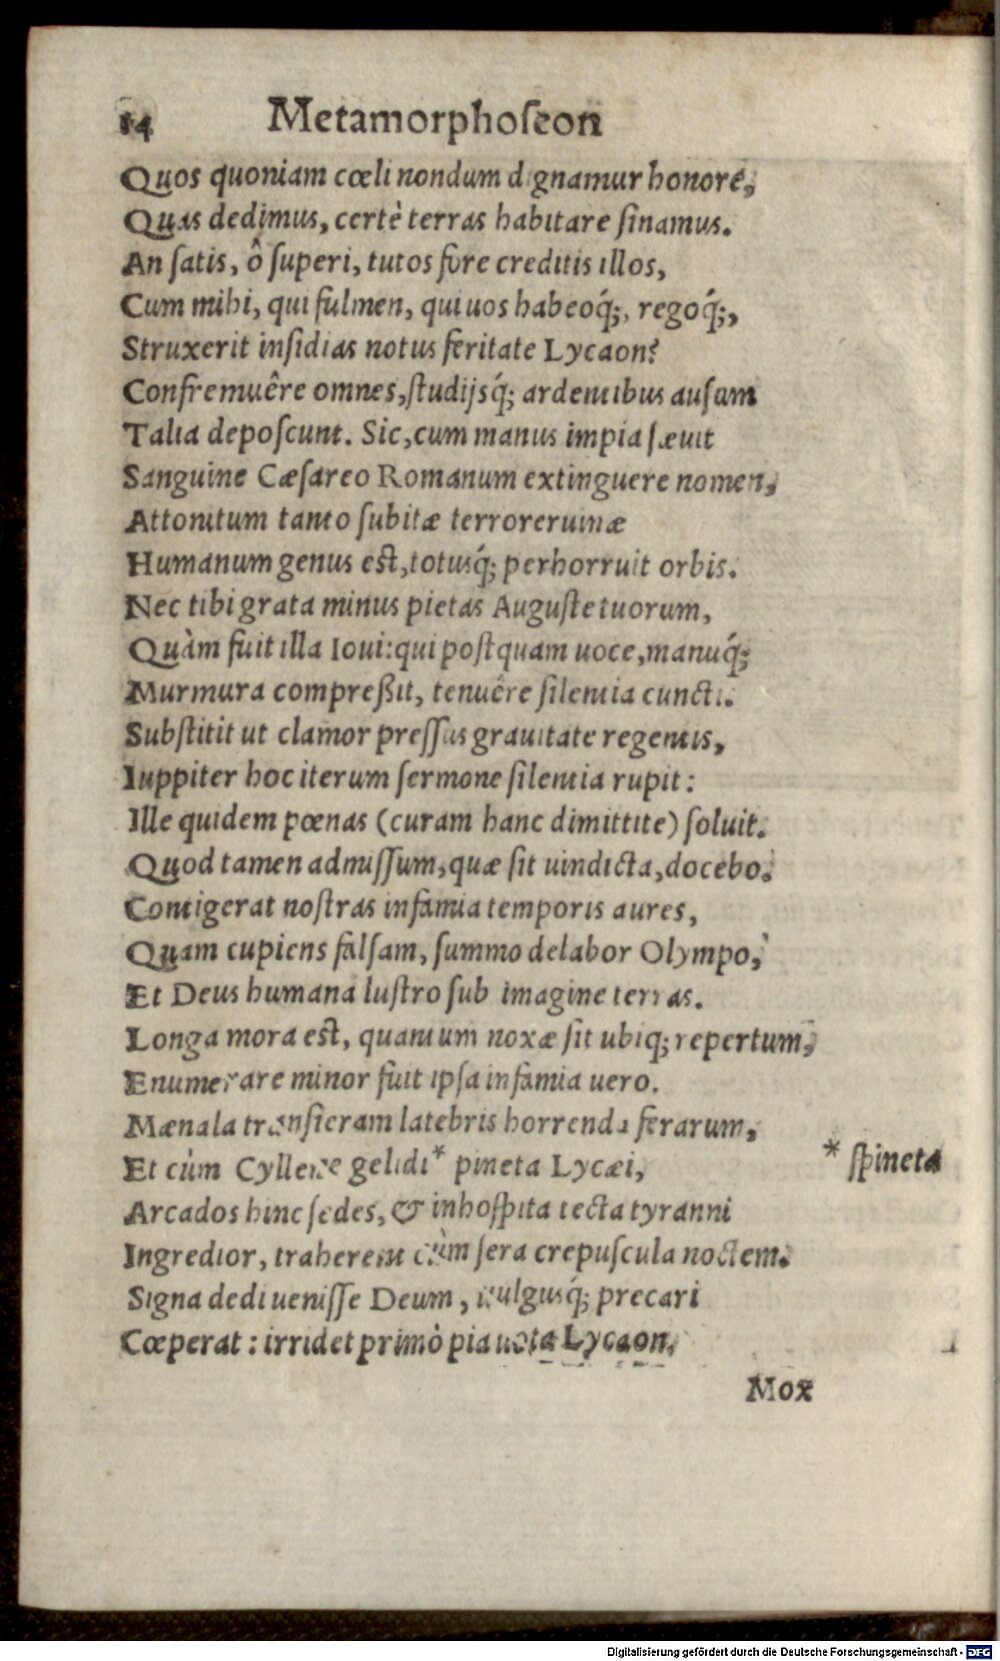 14 Metamorphoſeon
Quos quoniam cœli nondum dignamur honore,
Quas dedimus, certè terras habitare ſinamus.
An ſatis, ô ſuperi, tutos fore creditis illos,
Cum mihi, qui fulmen, qui uos habeoq́;, regoq́;,
Struxerit inſidias notus feritate Lycaon?
Confremuêre omnes, ſtudijsq́; ardentibus auſum
Talia depoſcunt. Sic, cum manus impia ſæuit
Sanguine Cæſareo Romanum extinguere nomen,
Attonitum tanto ſubitæ terrore ruinæ
Humanum genus eſt, totusq́; perhorruit orbis.
Nec tibi grata minus pietas Auguſte tuorum,
Quàm fuit illa Ioui: qui poſtquam uoce, manuq́;
Murmura compreßit, tenuêre ſilentia cuncti.
Subſtitit ut clamor preſſus grauitate regentis,
Iuppiter hoc iterum ſermone ſilentia rupit:
Ille quidem pœnas (curam hanc dimittite) ſoluit.
Quod tamen admiſſum, quæ ſit uindicta, docebo.
Contigerat noſtras infamia temporis aures,
Quam cupiens falſam, ſummo delabor Olympo,
Et Deus humana luſtro ſub imagine terras.
Longa mora eſt, quantum noxæ ſit ubiq; repertum,
Enumerare minor fuit ipſa infamia uero.
Mænala tranſieram latebris horrenda ferarum,
Et cùm Cyllene gelidi* pineta Lycæi,
* ſpineta
Arcados hinc ſedes, & inhoſpita tecta tyranni
Ingredior, traherent cùm ſera crepuſcula noctem.
Signa dedi ueniſſe Deum, uulgusq́; precari
Cœperat: irridet primò pia uota Lycaon,
Mox
Digitalisierung gefördert durch die Deutsche Forschungsgemeinschaft - DFG